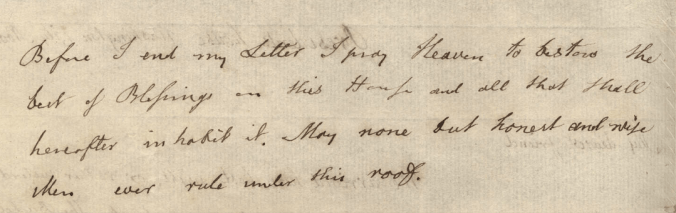 Before I end my Letter I pray Heaven to bestow the
best of Blessings on this House and all that shall
hereafter inhabit it. May none but honest and wise
Men ever rule under this roof.